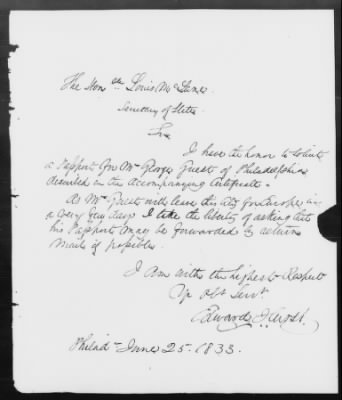 The Hon. ble Louis McLane
Secretary of State
Sir
I have the honor to solicit
a Passport for Mr George Guest of Philadelphia
described in the accompanying certificate.
As Mr Guest will leave this city for Europe in
a very few days I take the liberty of asking that
his Passport may be forwarded by return
mail if possible.
I am with the highest Respect
Yr obt Servt.
Edward
Philada June 25. 1833.